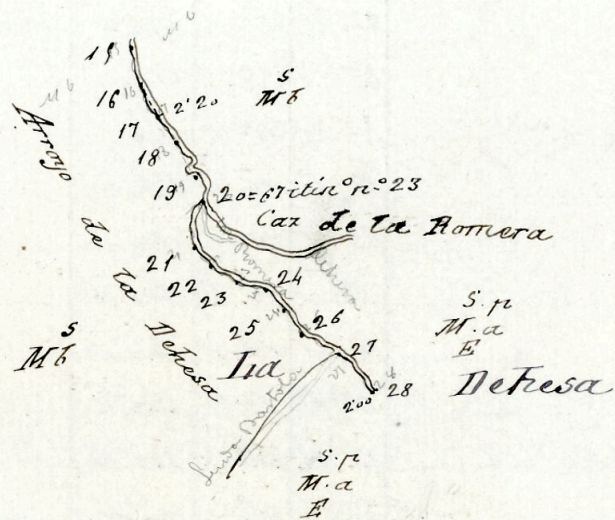 15
16
2'20
S
Mb
17
18
19
20=67 itinº nº 23
Caz de la Romera
Arroyo de la Dehesa
21
22
23
24
25
26
27
28
2'00
S
Mb
La Dehesa
S.p
M.a
E
S.p
M.a
E